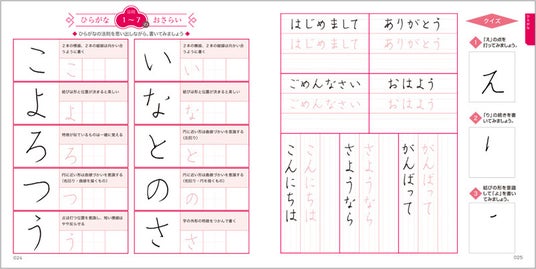 ひらがな 法則 1〜7 おさらい
◆ ひらがなの法則を思い出しながら、書いてみましょう ◆
こ
2本の横線、2本の縦線は向かい合うように書く
こ
い
2本の横線、2本の縦線は向かい合うように書く
い
よ
結びは形と位置が決まると美しい
よ
な
結びは形と位置が決まると美しい
な
ろ
特徴が似ているものは一緒に覚える
ろ
と
円に近い形は曲線づかいを意識する
と
つ
円に近い形は曲線づかいを意識する
つ
の
円に近い形は曲線づかいを意識する
の
う
点は打つ位置を意識し、短い横線はやや反らせる
う
さ
字の外形の特徴をつかんで書く
さ
024
はじめまして
はじめまして
ありがとう
ありがとう
ごめんなさい
ごめんなさい
おはよう
おはよう
がんばって
がんばって
さようなら
さようなら
こんにちは
こんにちは
クイズ
1
「え」の点を打ってみましょう。
2
「り」の続きを書いてみましょう。
3
結びの形を意識して「よ」を書いてみましょう。
025